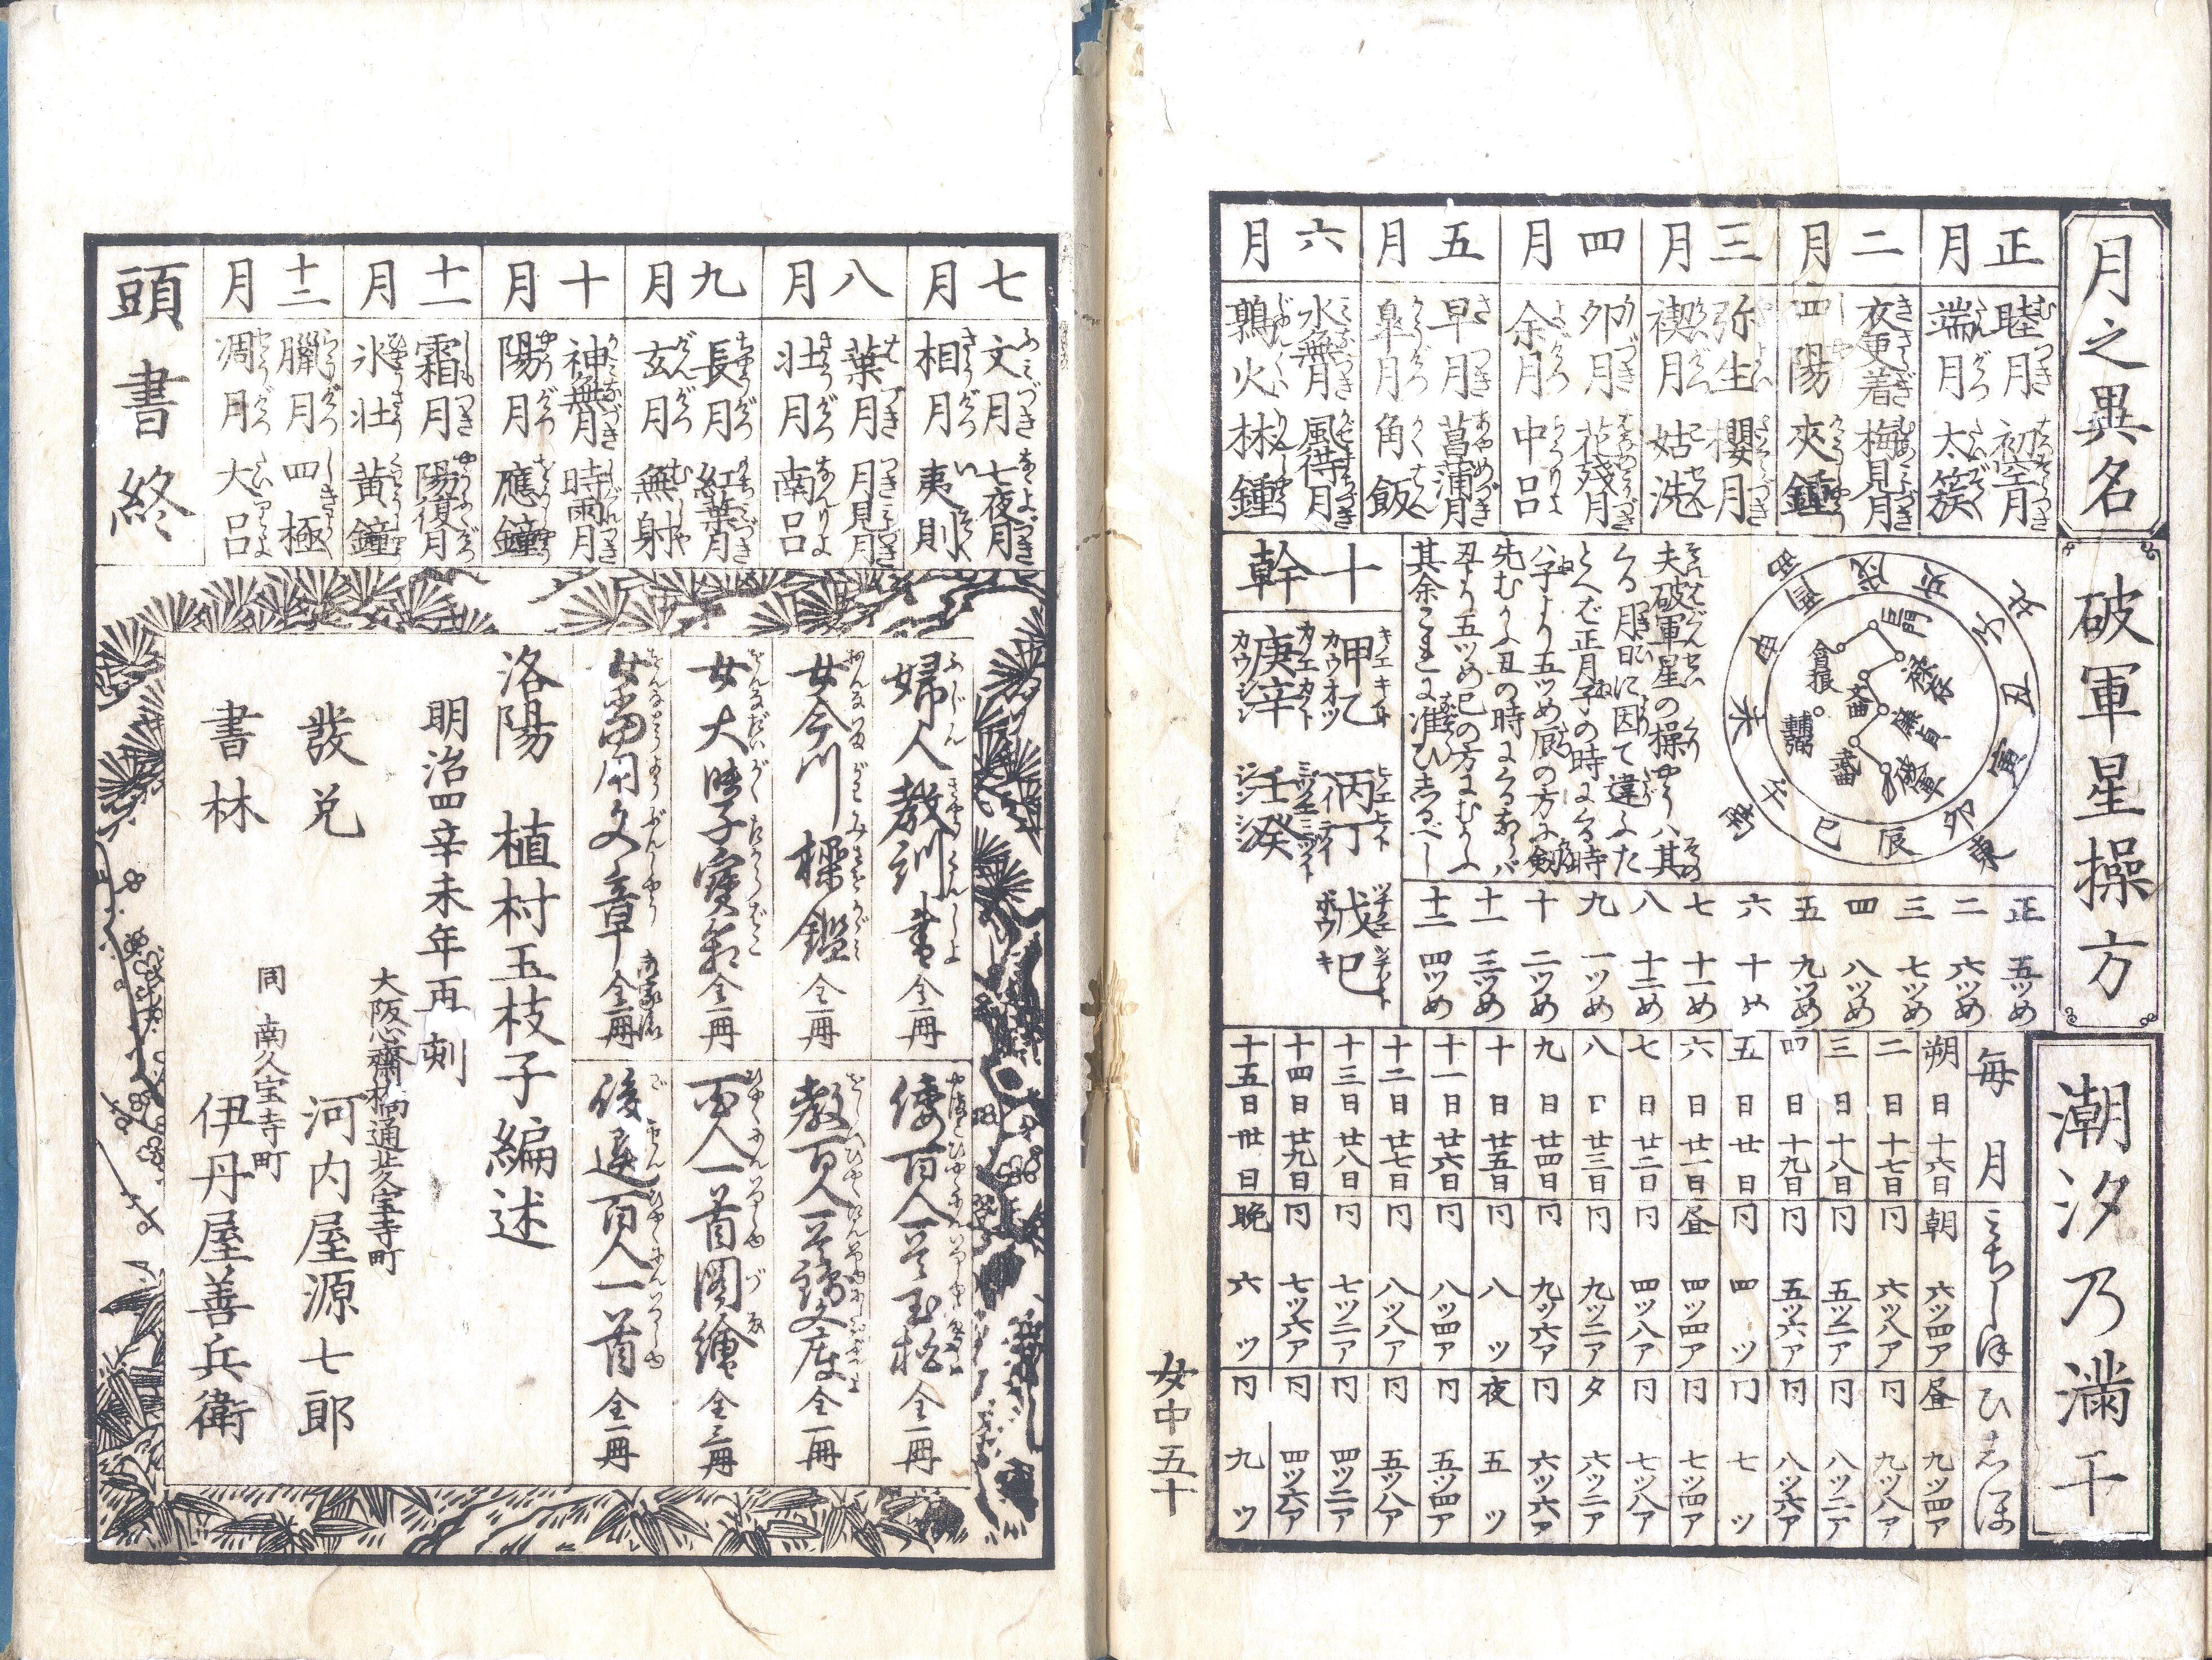 月之異名
正月
睦月 初空月
端月 太簇
二月
衣更着 梅見月
四陽 夾鍾
三月
弥生 櫻月
禊月 姑洗
四月
夘月 花残月
余月 中呂
五月
早月 菖蒲月
皐月 角飯
六月
水無月 風待月
鶉火 林鍾
破軍星操方
北 子 丑 寅 卯 東 辰 巳 午 南 未 申 酉 西 戌 亥
巨門
禄存
廉貞
破軍
武曲
文曲
貪狼
輔弼
夫破軍星の操やうハ其
くる月日に因て違ふた
とへば正月子の時にくる時
ハ子より五ツめ辰の方に剱
先むかふ丑の時にくるならバ
丑より五ツめ巳の方にむかふ
其余これに准ひしるべし
正 五ツめ
二 六ツめ
三 七ツめ
四 八ツめ
五 九ツめ
六 十め
七 十一め
八 十二め
九 一ツめ
十 二ツめ
十一 三ツめ
十二 四ツめ
十幹
甲乙 丙丁 戊己
庚辛 壬癸
潮汐乃満干
毎月 みちしほ ひしほ
朔日 十六日 朝 六ツ四ア 昼 九ツ四ア
二日 十七日 同 六ツ八ア 同 九ツ八ア
三日 十八日 同 五ツ二ア 同 八ツ二ア
四日 十九日 同 五ツ六ア 同 八ツ六ア
五日 廿日 同 四ツ 同 七ツ
六日 廿一日 昼 四ツ四ア 同 七ツ四ア
七日 廿二日 同 四ツ八ア 同 七ツ八ア
八日 廿三日 同 九ツ二ア 夕 六ツ二ア
九日 廿四日 同 九ツ六ア 同 六ツ六ア
十日 廿五日 同 八ツ 夜 五ツ
十一日 廿六日 同 八ツ四ア 同 五ツ四ア
十二日 廿七日 同 八ツ八ア 同 五ツ八ア
十三日 廿八日 同 七ツ二ア 同 四ツ二ア
十四日 廿九日 同 七ツ六ア 同 四ツ六ア
十五日 卅日 晩 六ツ 同 九ツ
女中五十
七月
文月 七夜月
相月 夷則
八月
葉月 月見月
壮月 南呂
九月
長月 紅葉月
玄月 無射
十月
神無月 時雨月
陽月 應鐘
十一月
霜月 陽復月
氷壮 黄鐘
十二月
臘月 四極
凋月 大呂
頭書終
婦人教訓書 全一冊
女今川操鑑 全一冊
女大學寶箱 全一冊
女當用文章 全一冊
倭百人一首玉松 全一冊
教百人一首 全一冊
百人一首圖繪 全三冊
後選百人一首 全一冊
洛陽 植村玉枝子編述
明治四辛未年再刻
發兌
大阪心齋橋通北久宝寺町
河内屋源七郎
書林
同 南久宝寺町
伊丹屋善兵衛